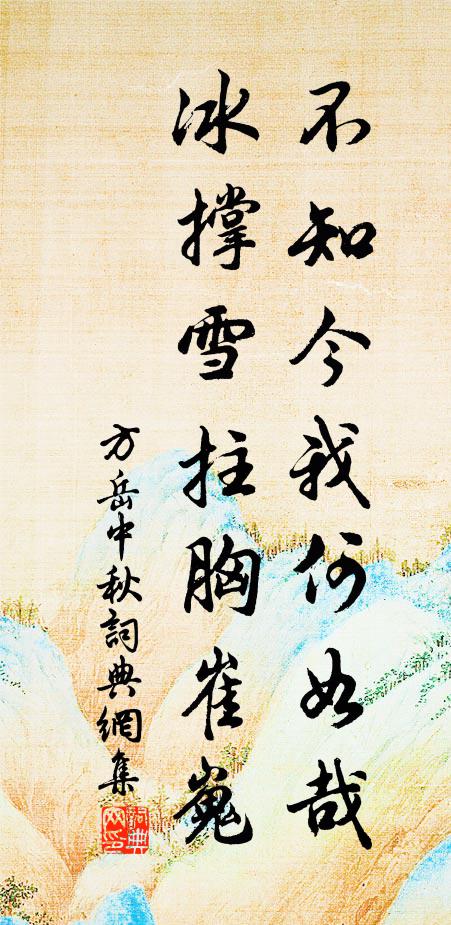 不知今我何如哉
冰撑雪拄胸崔嵬
方岳中秋詞典網集
詞典
网印